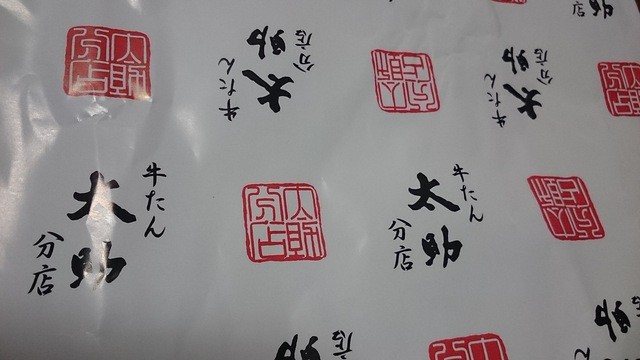 牛たん
太助
分店
太助
分店
牛たん
太助
分店
牛たん
太助
分店
助
牛たん
太助
分店
太助
分店
牛たん
太助
分店
太助
分店
助
分店
太助
助